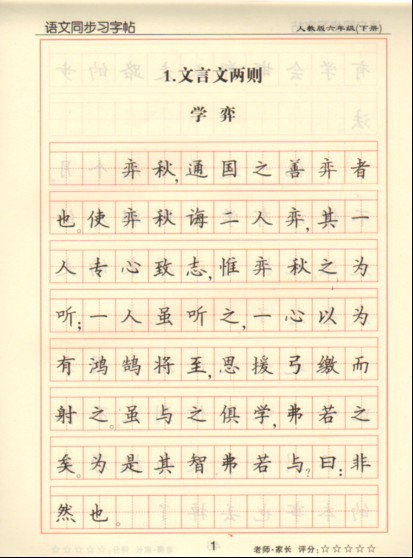 语文同步习字帖
人教版六年级(下册)
1.文言文两则
学 弈
弈秋,通国之善弈者
也。使弈秋诲二人弈,其一
人专心致志,惟弈秋之为
听;一人虽听之,一心以为
有鸿鹄将至,思援弓缴而
射之。虽与之俱学,弗若之
矣。为是其智弗若与?曰:非
然也。
1
老师·家长 评分:☆☆☆☆☆